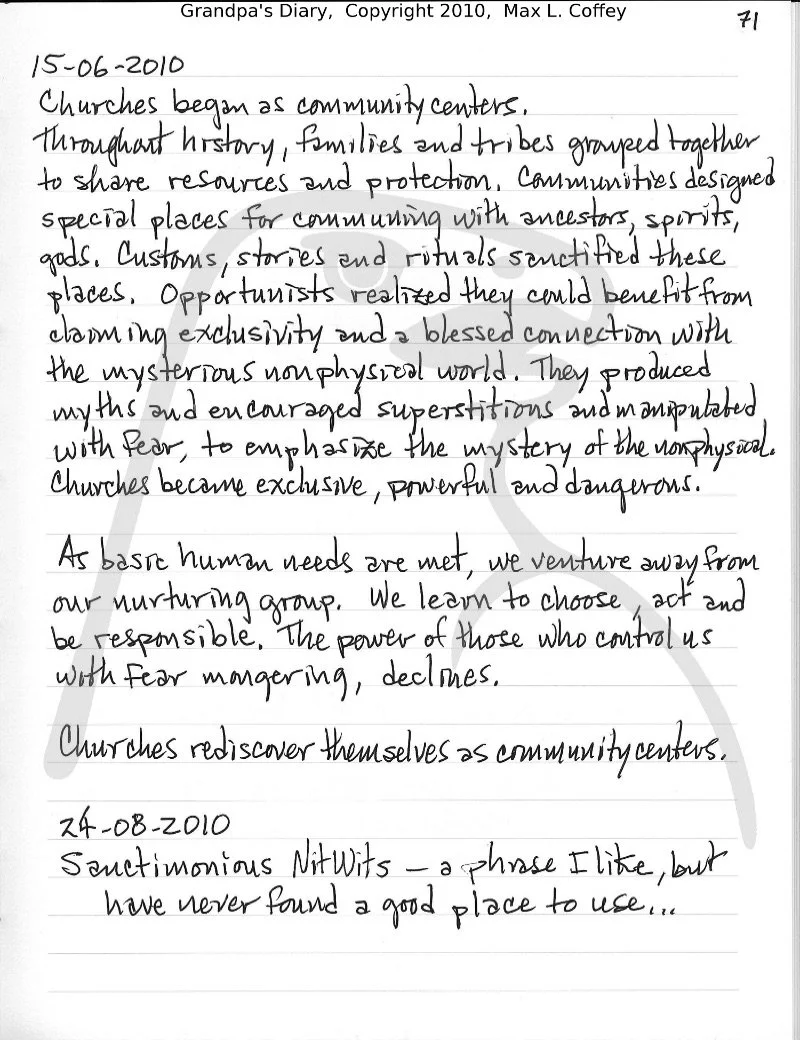 Grandpa's Diary, Copyright 2010, Max L. Coffey
71
15-06-2010
Churches began as community centers.
Throughout history, families and tribes grouped together
to share resources and protection. Communities designed
special places for communing with ancestors, spirits,
gods. Customs, stories and rituals sanctified these
places. Opportunists realized they could benefit from
claiming exclusivity and a blessed connection with
the mysterious nonphysical world. They produced
myths and encouraged superstitions and manipulated
with fear, to emphasize the mystery of the nonphysical.
Churches became exclusive, powerful and dangerous.
As basic human needs are met, we venture away from
our nurturing group. We learn to choose, act and
be responsible. The power of those who control us
with fear mongering, declines.
Churches rediscover themselves as community centers.
24-08-2010
Sanctimonious NitWits — a phrase I like, but
have never found a good place to use...